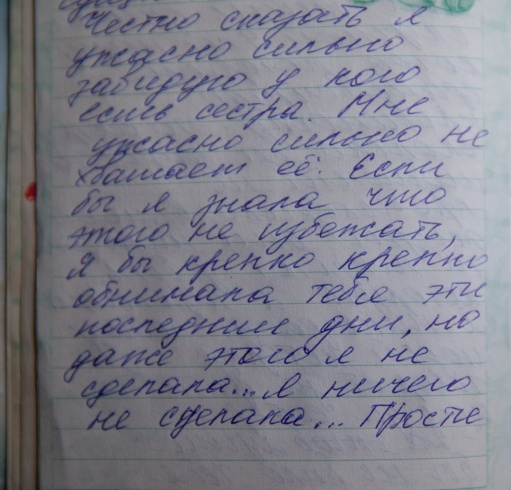 Честно сказать я
ужасно сильно
завидую у кого
есть сестра. Мне
ужасно сильно не
хватает её. Если
бы я знала что
этого не избежать,
я бы крепко крепко
обнимала тебя эти
последние дни, но
даже этого я не
сделала... Я ничего
не сделала... Прости